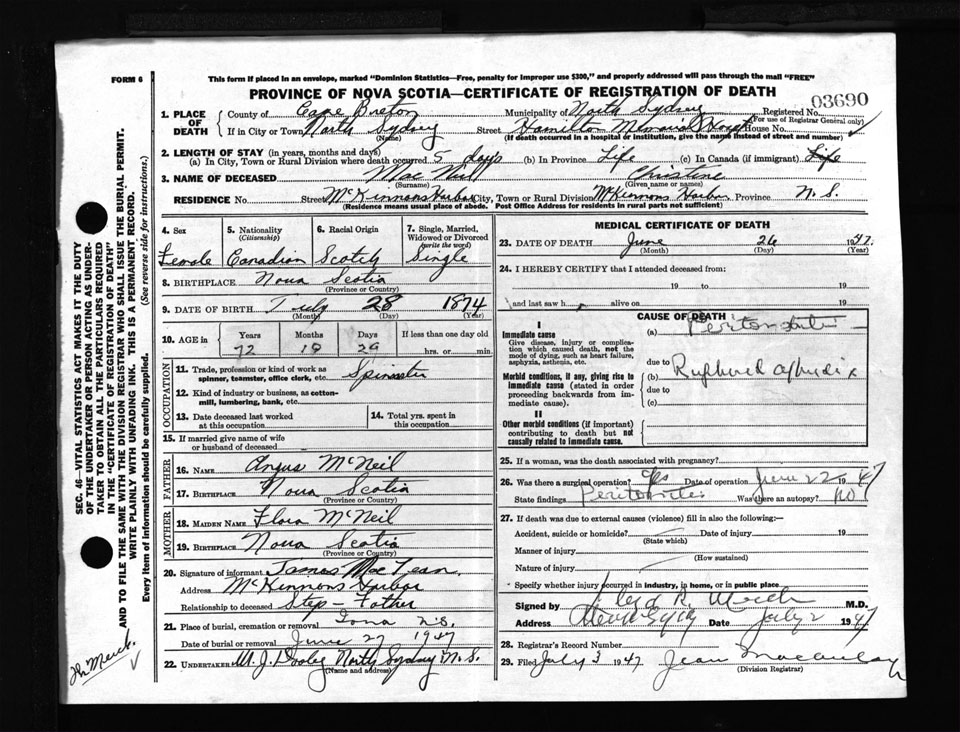 FORM 6
This form if placed in an envelope, marked "Dominion Statistics—Free, penalty for improper use $300," and properly addressed will pass through the mail "FREE"
PROVINCE OF NOVA SCOTIA—CERTIFICATE OF REGISTRATION OF DEATH
03690
1. PLACE OF DEATH
County of Cape Breton Municipality of North Sydney Registered No.
(For use of Registrar General only)
If in City or Town North Sydney Street Hamilton Memorial Hospt House No.
(Name) (If death occurred in a hospital or institution, give the name instead of street and number)
2. LENGTH OF STAY (in years, months and days)
(a) In City, Town or Rural Division where death occurred 5 days (b) In Province Life (c) In Canada (if immigrant) Life
3. NAME OF DECEASED Mac Neil Christine
(Surname) (Given name or names)
RESIDENCE No. Street McKinnons Harbor City, Town or Rural Division McKinnons Harbor Province N.S.
(Residence means usual place of abode. Post Office Address for residents in rural parts not sufficient)
4. Sex Female
5. Nationality (Citizenship) Canadian
6. Racial Origin Scotch
7. Single, Married, Widowed or Divorced (write the word) Single
8. BIRTHPLACE Nova Scotia
(Province or Country)
9. DATE OF BIRTH July 28 1874
(Month) (Day) (Year)
10. AGE in Years Months Days If less than one day old
72 10 29 hrs. or min.
OCCUPATION
11. Trade, profession or kind of work as spinner, teamster, office clerk, etc. Spinster
12. Kind of industry or business, as cotton-mill, lumbering, bank, etc.
13. Date deceased last worked at this occupation
14. Total yrs. spent in this occupation
15. If married give name of wife or husband of deceased
FATHER
16. NAME Angus McNeil
17. BIRTHPLACE Nova Scotia
(Province or Country)
MOTHER
18. MAIDEN NAME Flora McNeil
19. BIRTHPLACE Nova Scotia
(Province or Country)
20. Signature of informant James MacLean
Address McKinnons Harbor
Relationship to deceased Step-Father
21. Place of burial, cremation or removal Iona N.S.
Date of burial or removal June 27 1947
22. UNDERTAKER W. J. Dooley North Sydney N.S.
(Name and address)
MEDICAL CERTIFICATE OF DEATH
23. DATE OF DEATH June 26 1947.
(Month) (Day) (Year)
24. I HEREBY CERTIFY that I attended deceased from:
19 to 19
and last saw h alive on 19
CAUSE OF DEATH
I
Immediate cause
Give disease, injury or complication which caused death, not the mode of dying, such as heart failure, asphyxia, asthenia, etc.
(a) Peritonitis
due to
Morbid conditions, if any, giving rise to immediate cause (stated in order proceeding backwards from immediate cause).
(b) Ruptured appendix
due to
(c)
II
Other morbid conditions (if important) contributing to death but not causally related to immediate cause.
25. If a woman, was the death associated with pregnancy?
26. Was there a surgical operation? Yes Date of operation June 22 1947
State findings Peritonitis Was there an autopsy? no
27. If death was due to external causes (violence) fill in also the following:—
Accident, suicide or homicide? Date of injury 19
(State which)
Manner of injury
(How sustained)
Nature of injury
Specify whether injury occurred in industry, in home, or in public place
Signed by M.D.
Address Date July 2 1947
28. Registrar's Record Number
29. Filed July 3 1947 Jean
(Division Registrar)
SEC. 46—VITAL STATISTICS ACT MAKES IT THE DUTY
OF THE UNDERTAKER OR PERSON ACTING AS UNDER-
TAKER TO OBTAIN ALL THE PARTICULARS REQUIRED
IN THE "CERTIFICATE OF REGISTRATION OF DEATH"
AND TO FILE THE SAME WITH THE DIVISION REGISTRAR WHO SHALL ISSUE THE BURIAL PERMIT.
WRITE PLAINLY WITH UNFADING INK. THIS IS A PERMANENT RECORD.
Every item of Information should be carefully supplied. (See reverse side for instructions.)